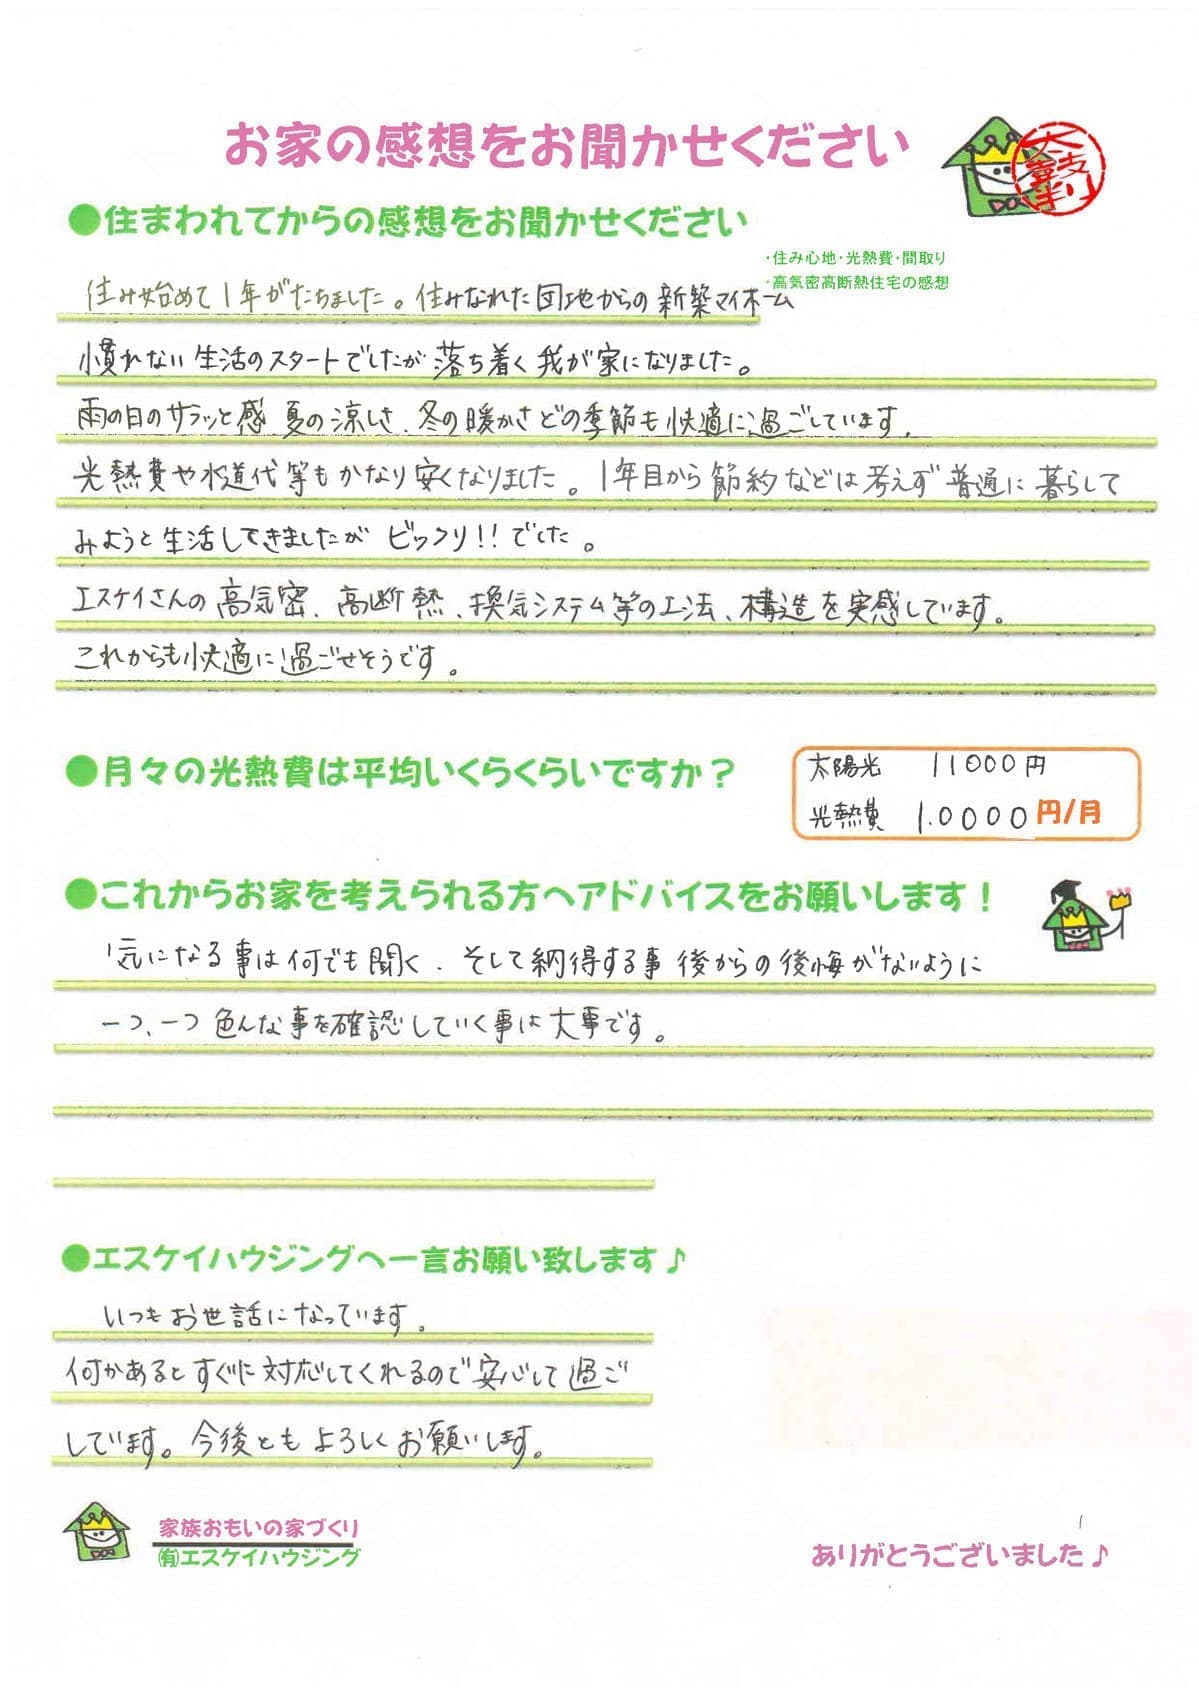 お家の感想をお聞かせください
太鼓判
●住まわれてからの感想をお聞かせください
・住み心地・光熱費・間取り
・高気密高断熱住宅の感想
住み始めて1年がたちました。住みなれた団地からの新築マイホーム
慣れない生活のスタートでしたが落ち着く我が家になりました。
雨の日のサラッと感 夏の涼しさ、冬の暖かさどの季節も快適に過ごしています。
光熱費や水道代等もかなり安くなりました。1年目から節約などは考えず普通に暮らして
みようと生活してきましたが ビックリ!!でした。
エスケイさんの高気密、高断熱、換気システム等の工法、構造を実感しています。
これからも快適に過ごせそうです。
●月々の光熱費は平均いくらくらいですか?
太陽光 11000円
光熱費 1.0000円/月
●これからお家を考えられる方へアドバイスをお願いします!
気になる事は何でも聞く、そして納得する事 後からの後悔がないように
一つ、一つ色んな事を確認していく事は大事です。
●エスケイハウジングへ一言お願い致します♪
いつもお世話になっています。
何かあるとすぐに対応してくれるので安心して過ご
しています。今後ともよろしくお願いします。
家族おもいの家づくり
㈲エスケイハウジング
ありがとうございました♪